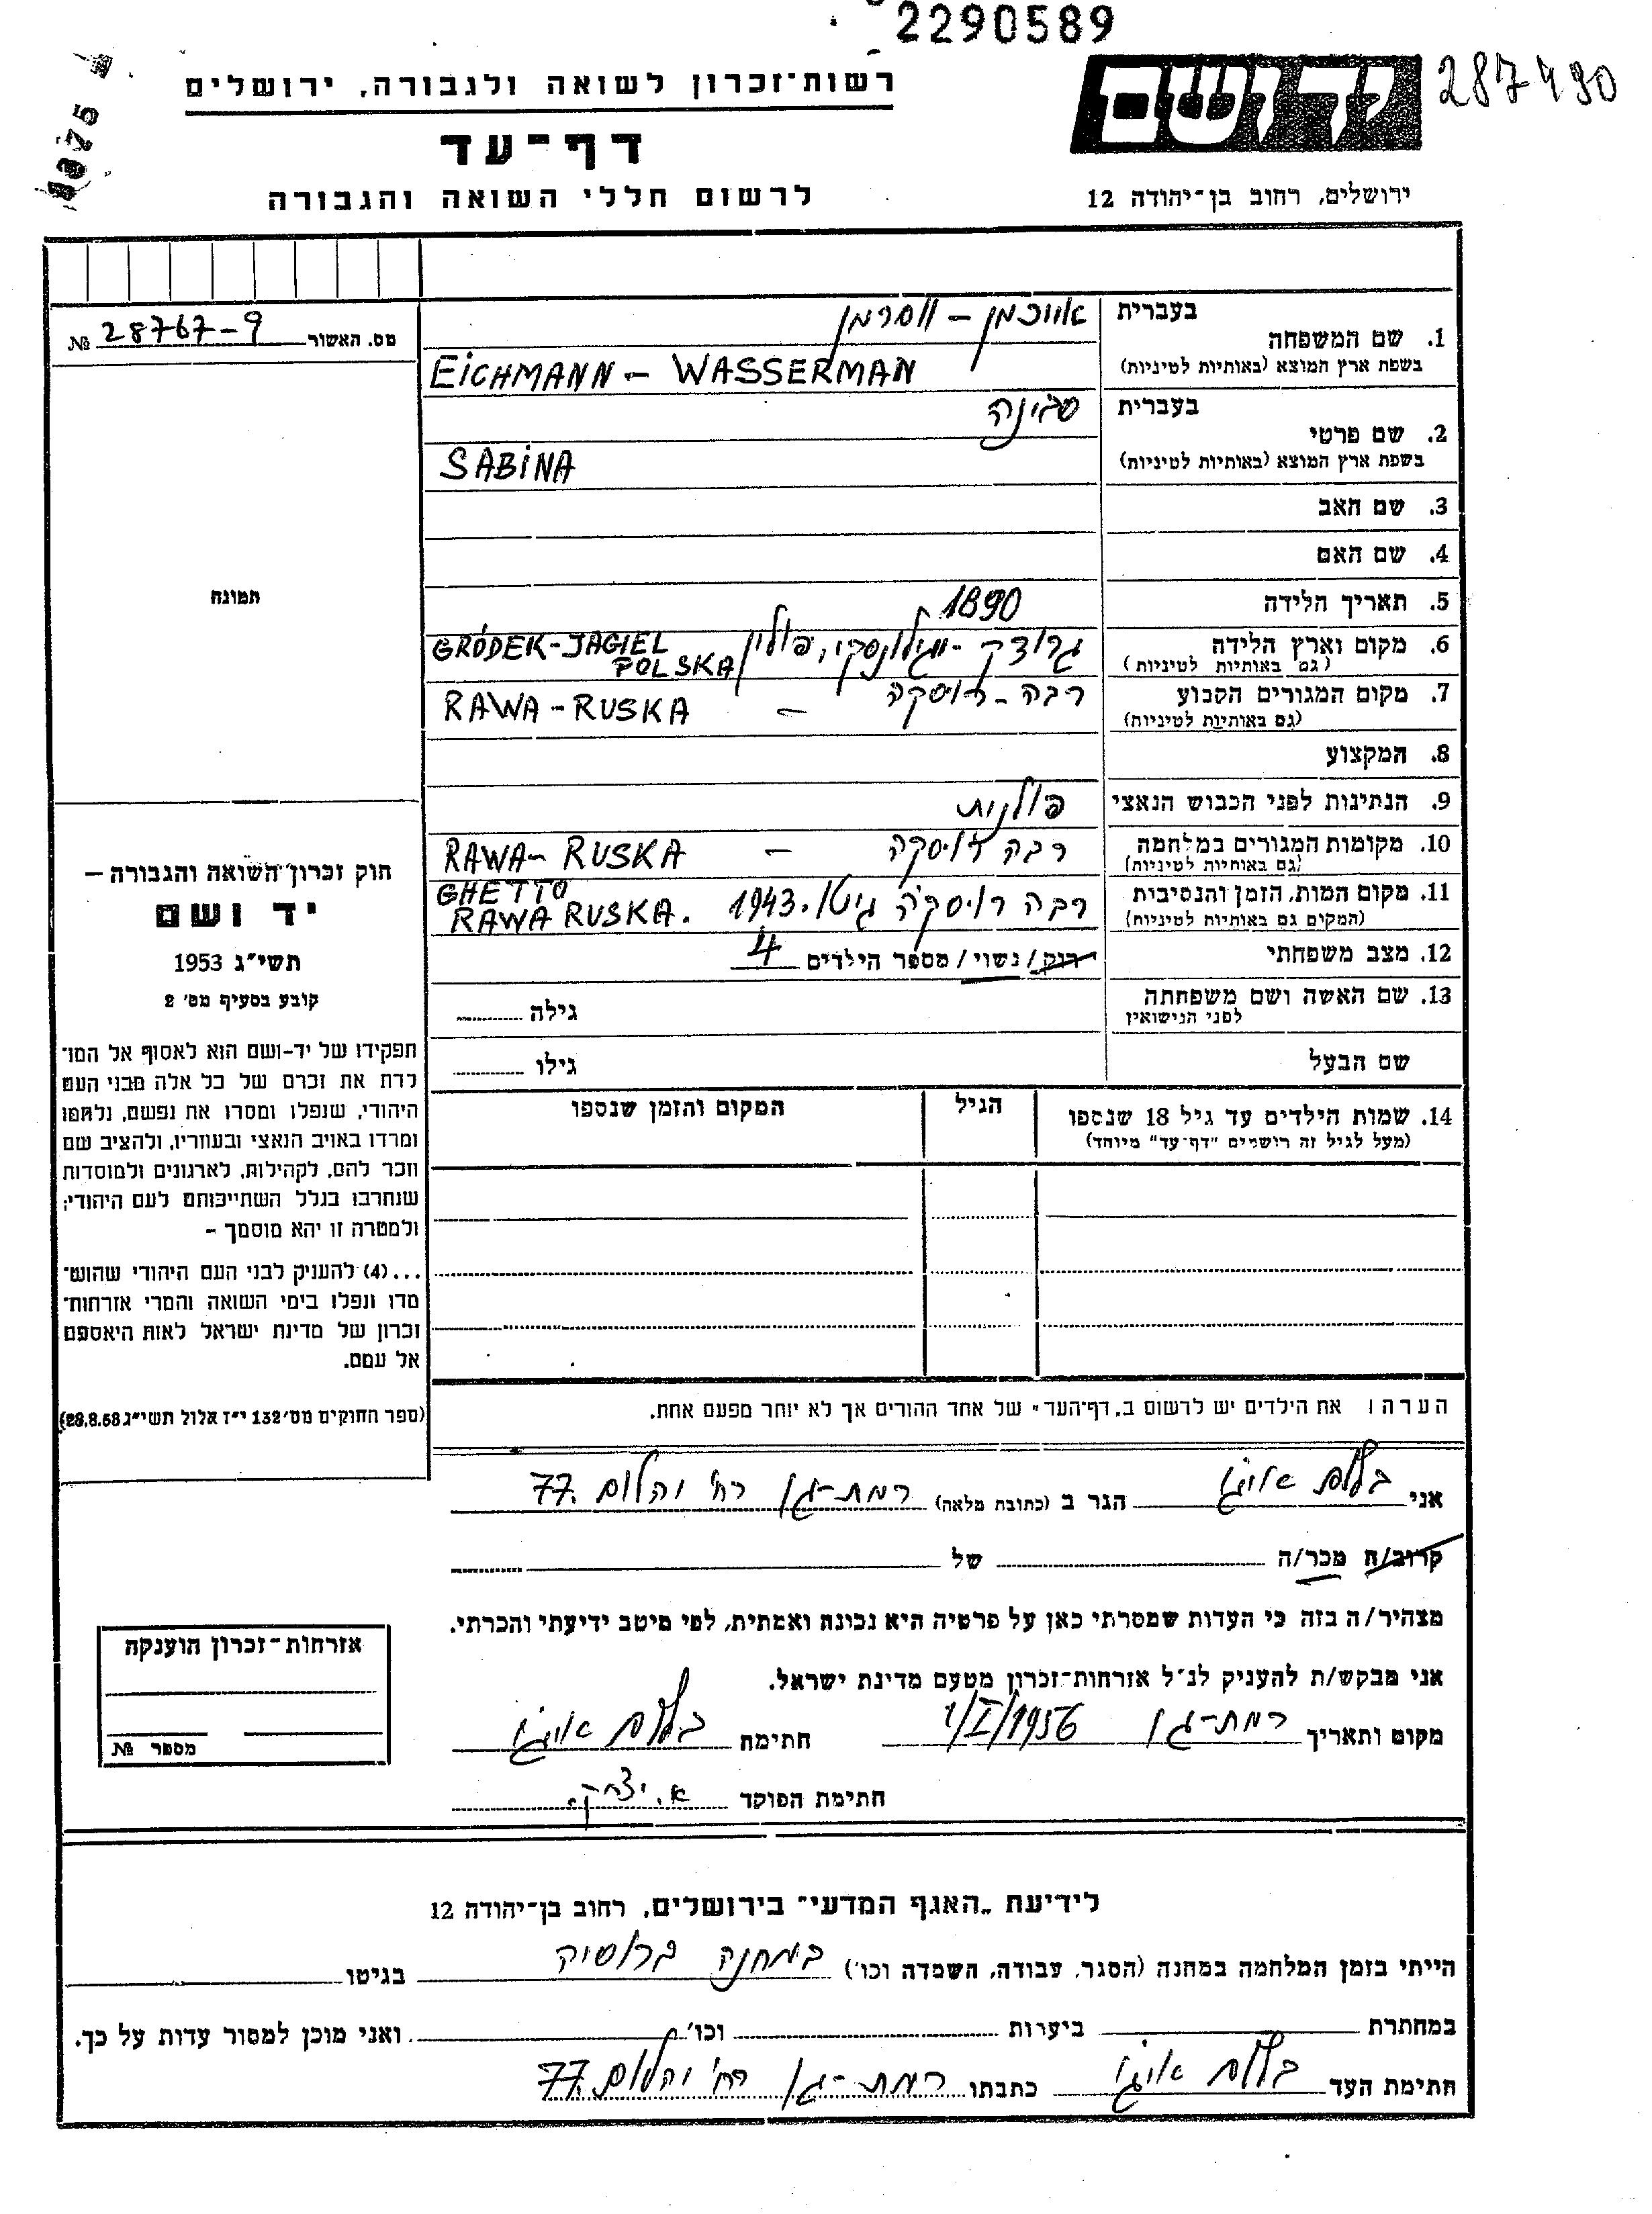 2290589
287490
רשות־זכרון לשואה ולגבורה, ירושלים
יד ושם
דף־עד
לרשום חללי השואה והגבורה
ירושלים, רחוב בן־יהודה 12
מס. האשור № 28767-9
1. שם המשפחה
בעברית אייכמן - ווסרמן
בשפת ארץ המוצא (באותיות לטיניות) EICHMANN - WASSERMAN
2. שם פרטי
בעברית סבינה
בשפת ארץ המוצא (באותיות לטיניות) SABINA
3. שם האב
4. שם האם
תמונה
5. תאריך הלידה 1890
6. מקום וארץ הלידה
(גם באותיות לטיניות) פולין GRÓDEK-JAGIEL POLSKA
7. מקום המגורים הקבוע רבה-רוסקה - RAWA-RUSKA
(גם באותיות לטיניות)
8. המקצוע
9. הנתינות לפני הכבוש הנאצי פולנית
10. מקומות המגורים במלחמה רבה רוסקה - RAWA-RUSKA
(גם באותיות לטיניות)
11. מקום המות, הזמן והנסיבות רבה רוסקה גיטו. 1943 GHETTO RAWA RUSKA.
(המקום גם באותיות לטיניות)
12. מצב משפחתי רוק/נשוי/מספר הילדים 4
13. שם האשה ושם משפחתה גילה
לפני הנישואין
שם הבעל גילו
14. שמות הילדים עד גיל 18 שנספו הגיל המקום והזמן שנספו
(מעל לגיל זה רושמים "דף־עד" מיוחד)
חוק זכרון השואה והגבורה –
יד ושם
תשי"ג 1953
קובע בסעיף מס' 2
תפקידו של יד-ושם הוא לאסוף אל המו־
לדת את זכרם של כל אלה מבני העם
היהודי, שנפלו ומסרו את נפשם, נלחמו
ומרדו באויב הנאצי ובעוזריו, ולהציב שם
וזכר להם, לקהילות, לארגונים ולמוסדות
שנחרבו בגלל השתייכותם לעם היהודי;
ולמטרה זו יהא מוסמך –
...(4) להעניק לבני העם היהודי שהוש־
מדו ונפלו בימי השואה והמרי אזרחות־
זכרון של מדינת ישראל לאות היאספם
אל עמם.
(ספר החוקים מס' 132 י"ז אלול תשי"ג 28.8.53)
הערה: את הילדים יש לרשום ב„דף־העד" של אחד ההורים אך לא יותר מפעם אחת.
אני הגר ב (כתובת מלאה) רמת-גן רח' יהלום 77.
קרוב/ה מכר/ה של
מצהיר/ה בזה כי העדות שמסרתי כאן על פרטיה היא נכונה ואמתית, לפי מיטב ידיעתי והכרתי.
אני מבקש/ת להעניק לנ"ל אזרחות־זכרון מטעם מדינת ישראל.
מקום ותאריך רמת-גן 1/I/1956 חתימה
חתימת הפוקד א. יצחק.
אזרחות־זכרון הוענקה
מספר №
לידיעת „האגף המדעי" בירושלים, רחוב בן־יהודה 12
הייתי בזמן המלחמה במחנה (הסגר, עבודה, השמדה וכו') במחנה ברוסיה בגיטו
במחתרת ביערות וכו' ואני מוכן למסור עדות על כך.
חתימת העד כתבתו רמת-גן רח' יהלום 77.